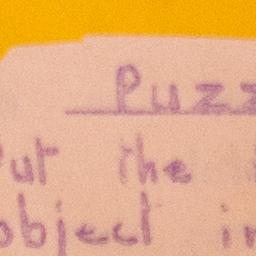 Puzz
Put the
object in